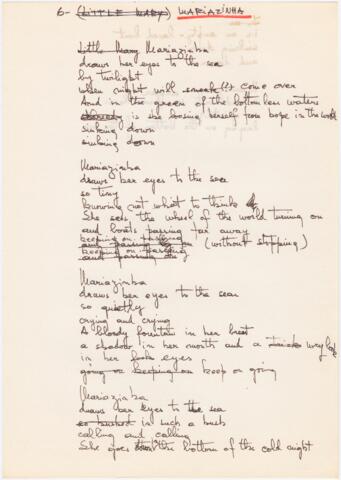 6- (LITTLE MARY) MARIAZINHA
Little Mary Mariazinha
draws her eyes to the sea
by twilight
when night will sneak(!?) come over
And in the green of the bottomless waters
already is she loosing herself from hope in the world
sinking down
sinking down
Mariazinha
draws her eyes to the sea
so tiny
knowing not what to think
She sets the wheel of the world turning on
and boats passing far away
keeping on passing
and passing on (without stopping)
keeping on passing
and passing on
Mariazinha
draws her eyes to the sea
so quietly
crying and crying
A bloody fountain in her breast
a shadow in her mouth and a
in her eyes
going on keeping on keep on going
Mariazinha
draws her eyes to the sea
so hushed in such a hush
calling and calling
She goes down the bottom of the cold night